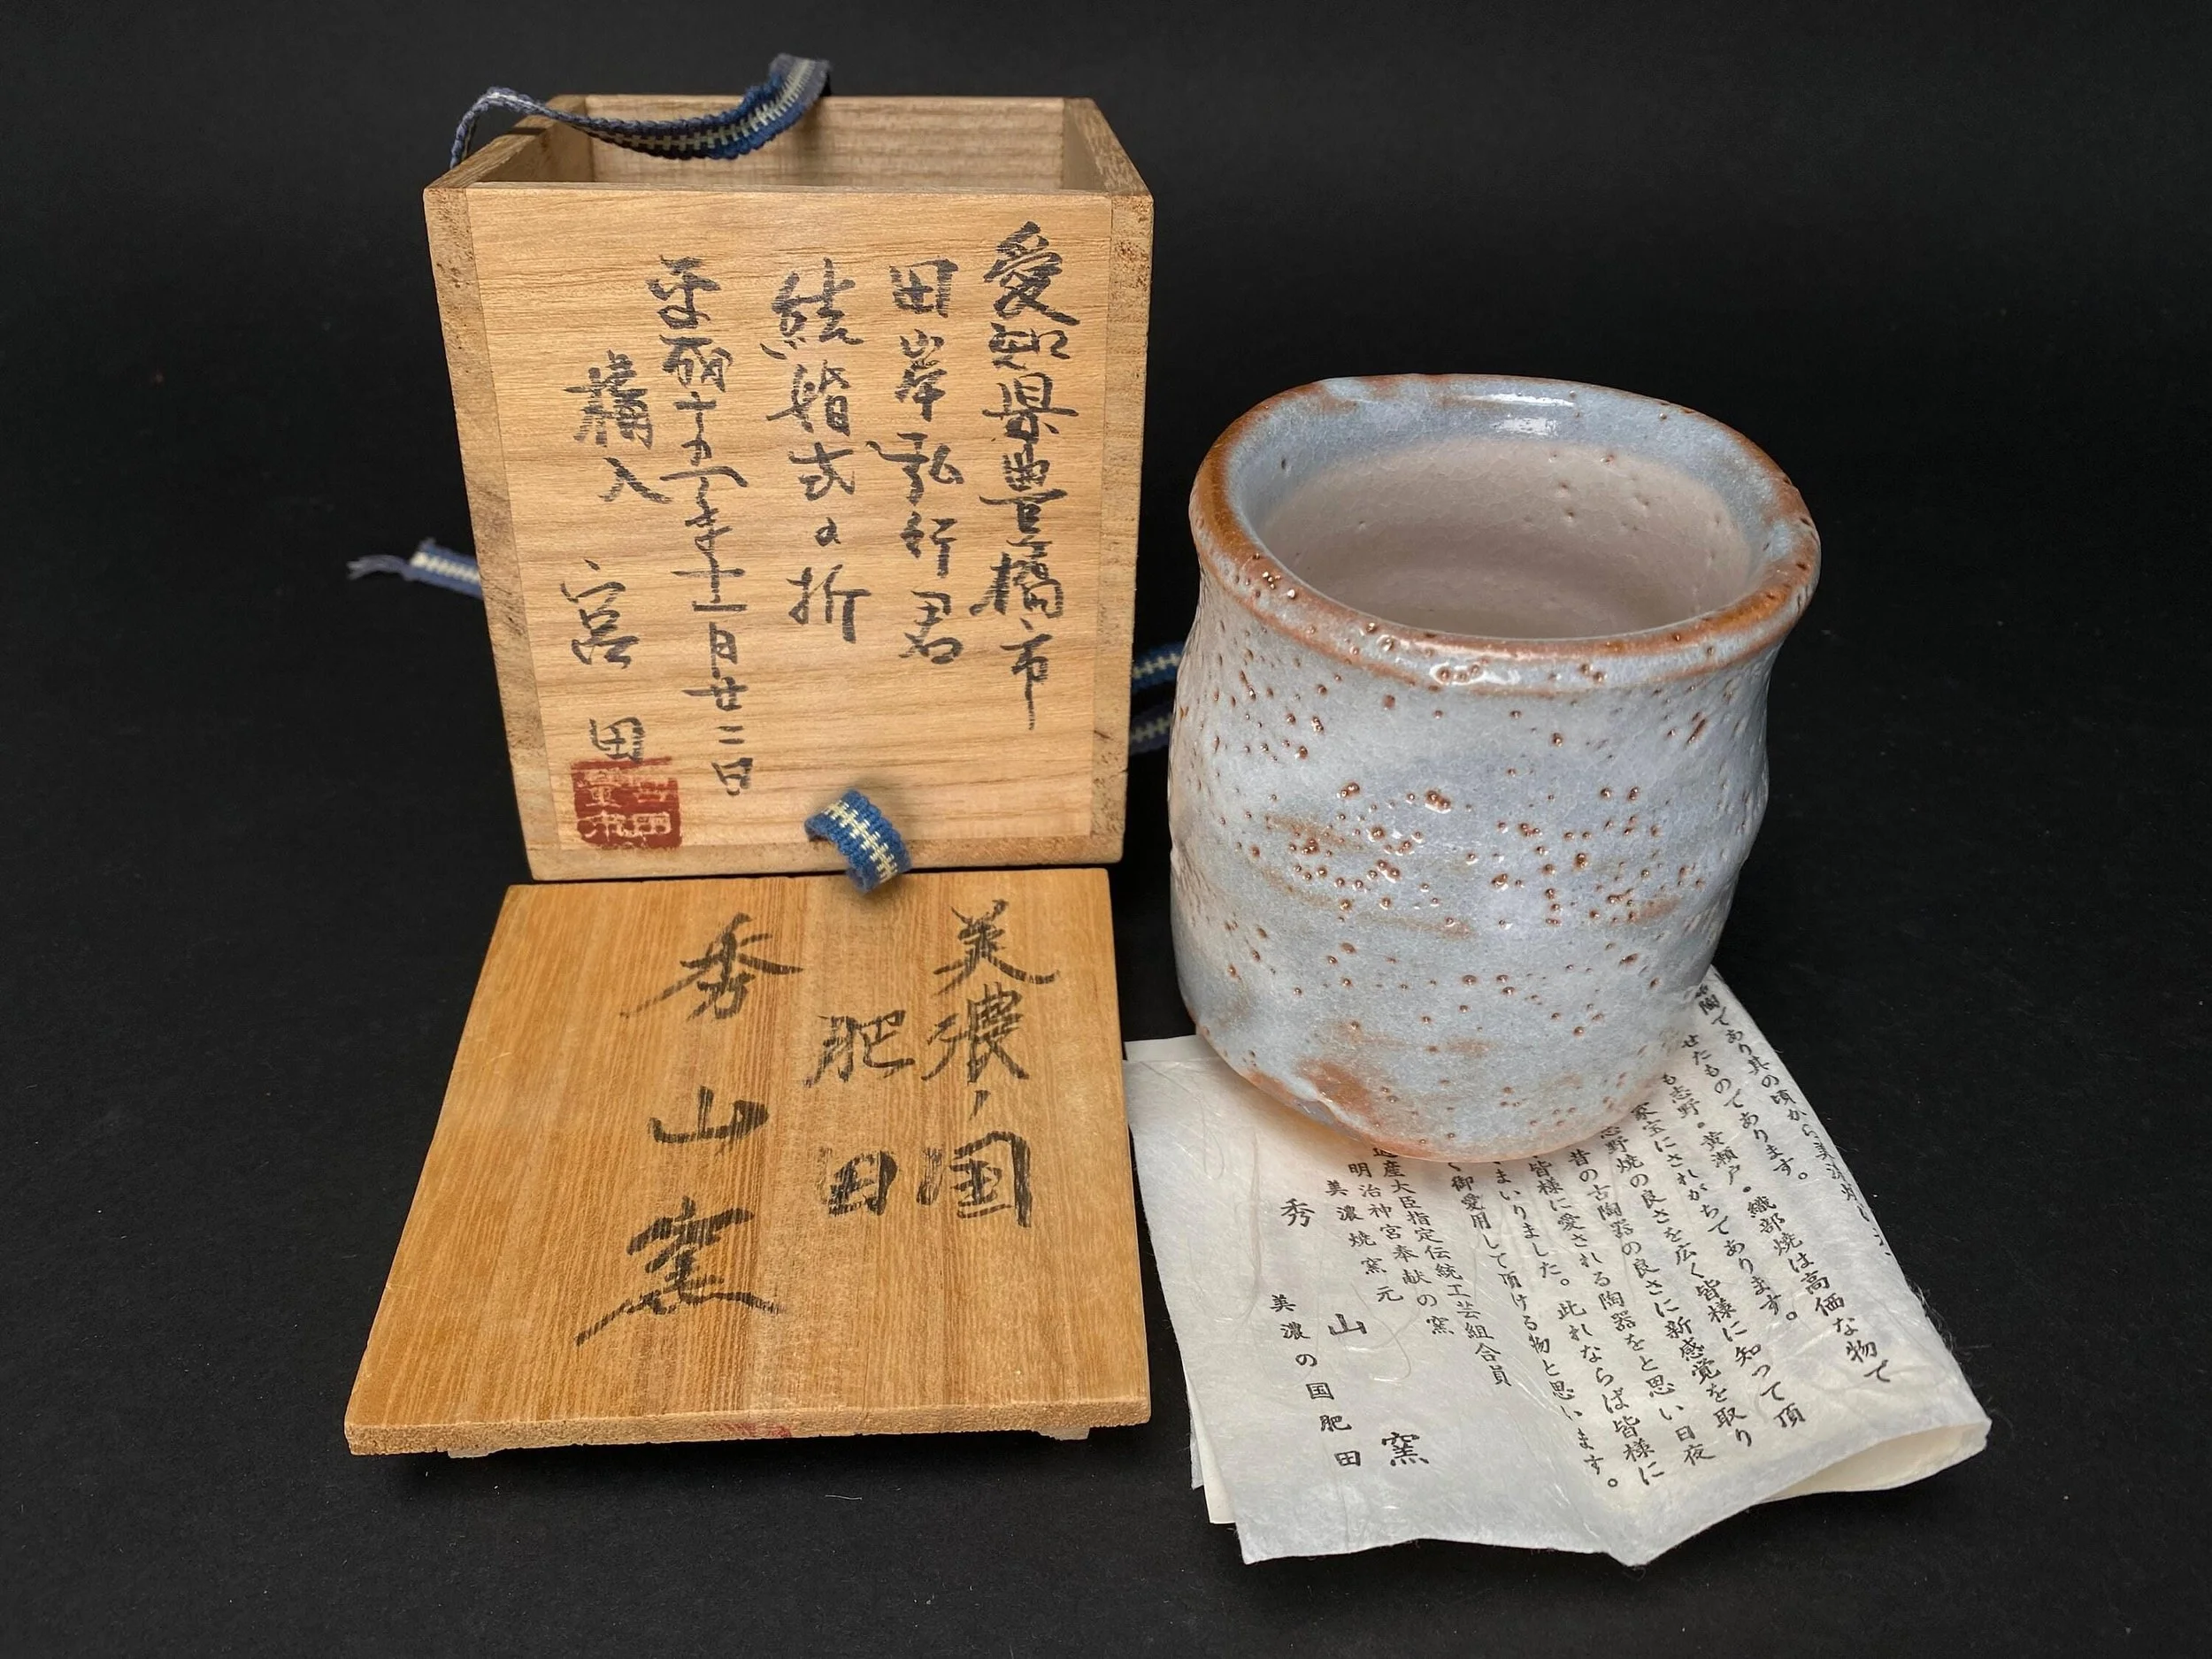 愛知県豊橋市
田岸弘行君
結婚式の折
平成十五年十一月廿二日
購入 宮田
美濃ノ国
肥田
秀山窯
陶であり其の頃から美濃焼
せたものであります。
も志野・黄瀬戸・織部焼は高価な物で
家宝にされがちであります。
志野焼の良さを広く皆様に知って頂
昔の古陶器の良さに新感覚を取り
皆様に愛される陶器をと思い日夜
まいりました。此れならば皆様に
く御愛用して頂ける物と思います。
産大臣指定伝統工芸組合員
明治神宮奉献の窯
美濃焼窯元
秀山窯
美濃の国肥田